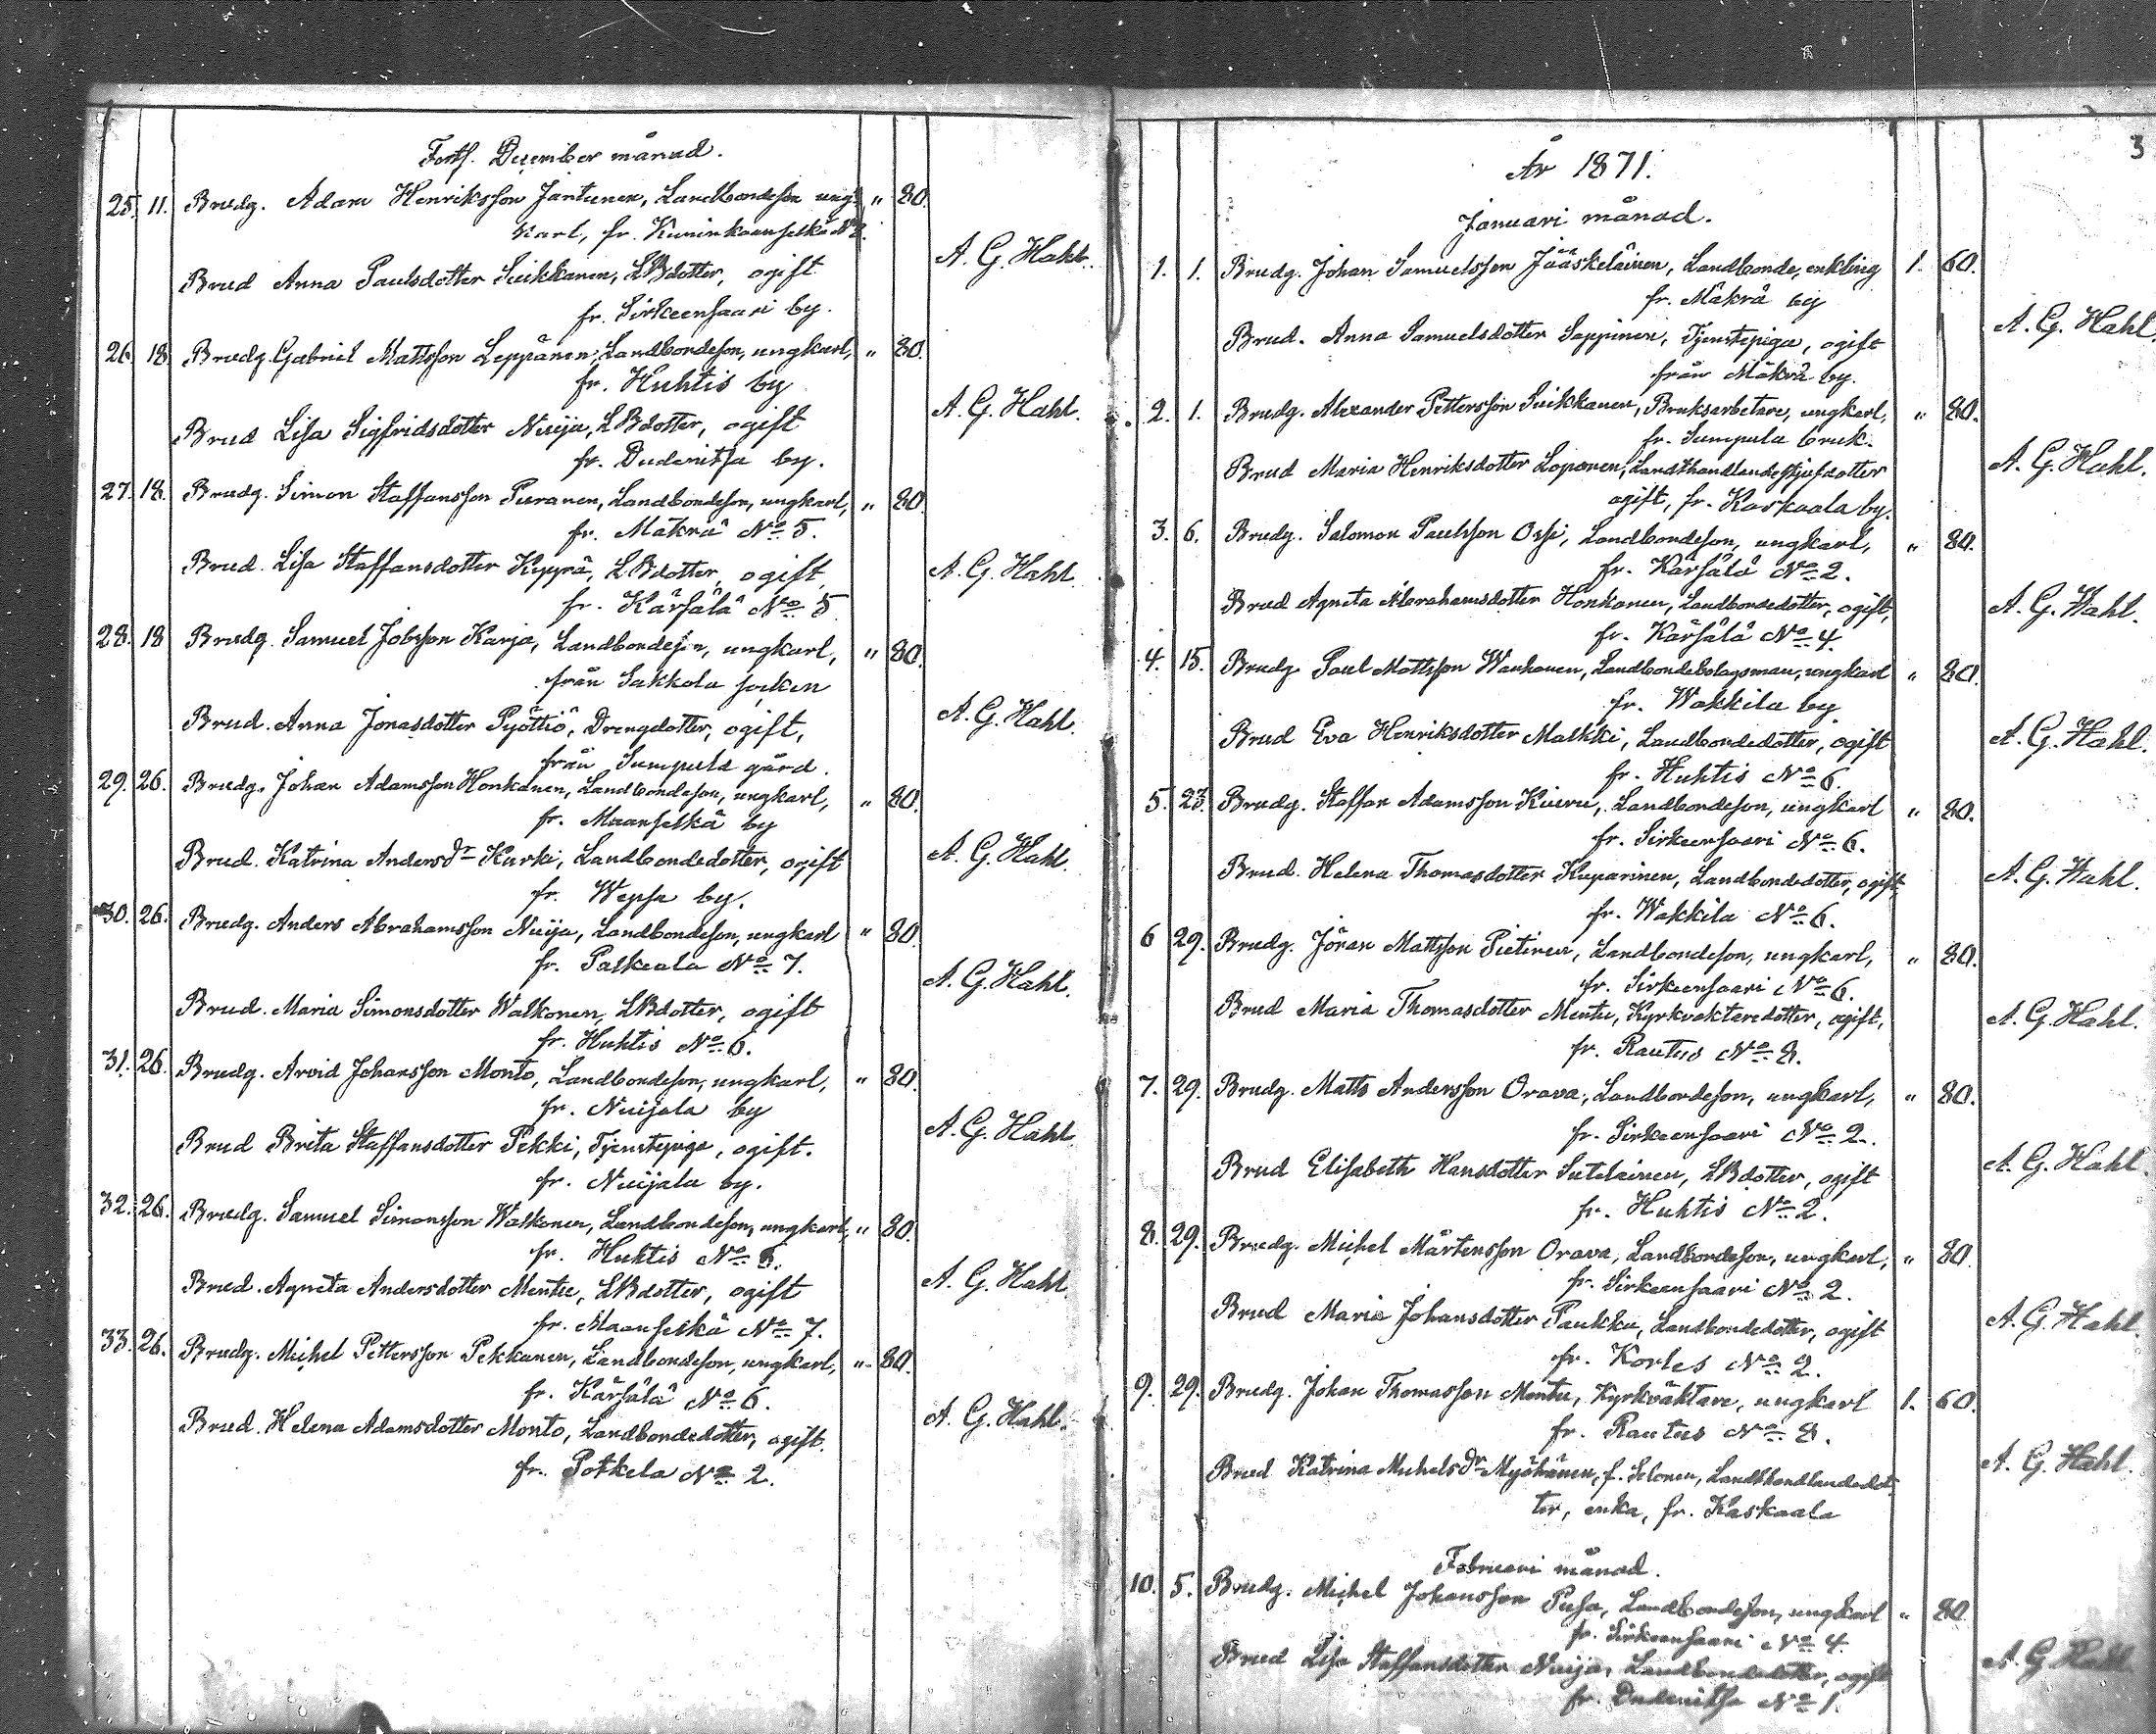 Forts. December månad.
25. 11. Brudg. Adam Henriksson Jantunen, Landbondeson ung- " 80.
karl, fr. Kuninkaanselkä No 2.
A. G. Hahl.
Brud Anna Paulsdotter Suikkanen, LBdotter, ogift
fr. Sirkeensaari by.
26. 18. Brudg. Gabriel Mattsson Leppänen, Landbondeson, ungkarl, " 80.
fr. Huhtis by
A. G. Hahl.
Brud Lisa Sigfridsdotter Nuija, LBdotter, ogift
fr. Dudenitsa by.
27. 18. Brudg. Simon Staffansson Puranen, Landbondeson, ungkarl, " 80.
fr. Mäkrä No 5.
Brud. Lisa Staffansdotter Kyyrä, LBdotter, ogift A. G. Hahl.
fr. Kärsälä No 5
28. 18 Brudg. Samuel Jobsson Karja, Landbondeson, ungkarl, " 80.
från Sakkola socken
Brud. Anna Jonasdotter Pyöttiö, Drengdotter, ogift, A. G. Hahl.
från Sumpula gård.
29. 26. Brudg. Johan Adamsson Honkanen, Landbondeson, ungkarl, " 80.
fr. Maanselkä by
Brud. Katrina Andersdr Kurki, Landbondedotter, ogift A. G. Hahl.
fr. Wepsa by.
30. 26. Brudg. Anders Abrahamsson Nuija, Landbondeson, ungkarl " 80.
fr. Palkeala No 7.
A. G. Hahl.
Brud. Maria Simonsdotter Walkonen, LBdotter, ogift
fr. Huhtis No 6.
31. 26. Brudg. Arvid Johansson Monto, Landbondeson, ungkarl, " 80.
fr. Nuijala by
Brud Brita Staffansdotter Pekki, Tjenstepiga, ogift. A. G. Hahl
fr. Nuijala by.
32. 26. Brudg. Samuel Simonsson Walkonen, Landbondeson, ungkarl, " 80.
fr. Huhtis No 6.
Brud. Agneta Andersdotter Mentu, LBdotter, ogift A. G. Hahl
fr. Maanselkä No 7.
33. 26. Brudg. Michel Pettersson Pekkanen, Landbondeson, ungkarl, " 80.
fr. Kärsälä No 6.
Brud. Helena Adamsdotter Monto, Landbondedotter, ogift. A. G. Hahl.
fr. Potkela No 2.
3
År 1871.
Januari månad.
1. 1. Brudg. Johan Samuelsson Jääskeläinen, Landbonde, enkling 1. 60.
fr. Mäkrä by
Brud. Anna Samuelsdotter Seppinen, Tjenstepiga, ogift A. G. Hahl.
från Mäkrä by.
2. 1. Brudg. Alexander Pettersson Suikkanen, Bruksarbetare, ungkarl, " 80.
fr. Sumpula bruk.
Brud Maria Henriksdotter Loponen, dotter A. G. Hahl.
ogift, fr. Kaskaala by.
3. 6. Brudg. Salomon Paulsson Ossi, Landbondeson, ungkarl, " 80.
fr. Kärsälä No 2.
Brud Agneta Abrahamsdotter Honkanen, Landbondedotter, ogift, A. G. Hahl.
fr. Kärsälä No 4.
4. 15. Brudg. Paul Mattsson Wanhanen, Landbondebolagsman, ungkarl " 80.
fr. Wakkila by
Brud Eva Henriksdotter Malkki, Landbondedotter, ogift A. G. Hahl.
fr. Huhtis No 6.
5. 23. Brudg. Staffan Adamsson Kiuru, Landbondeson, ungkarl " 80.
fr. Sirkeensaari No 6.
Brud. Helena Thomasdotter Kuparinen, Landbondedotter, ogift, A. G. Hahl.
fr. Wakkila No 6.
6 29. Brudg. Jöran Mattsson Pietinen, Landbondeson, ungkarl, " 80.
fr. Sirkeensaari No 6.
Brud Maria Thomasdotter Mentu, Kyrkvaktaredotter, ogift, A. G. Hahl.
fr. Rautus No 8.
7. 29. Brudg. Matts Andersson Orava, Landbondeson, ungkarl, " 80.
fr. Sirkeensaari No 2.
Brud Elisabeth Hansdotter Sutelainen, LBdotter, ogift A. G. Hahl.
fr. Huhtis No 2.
8. 29. Brudg. Michel Mårtensson Orava, Landbondeson, ungkarl, " 80.
fr. Sirkeensaari No 2.
Brud Maria Johansdotter Paukku, Landbondedotter, ogift A. G. Hahl.
fr. Korles No 2.
9. 29. Brudg. Johan Thomasson Mentu, Kyrkväktare, ungkarl 1. 60.
fr. Rautus No 8.
Brud Katrina Michelsdr Myöhänen, f. Ilonen, Landthandlandedot- A. G. Hahl.
ter, enka, fr. Kaskaala
Februari månad.
10. 5. Brudg. Michel Johansson Pusa, Landbondeson, ungkarl " 80.
fr. Sirkeensaari No 4.
Brud Lisa Staffansdotter Nuija, Landbondedotter, ogift A. G. Hahl
fr. Dudenitsa No 1.